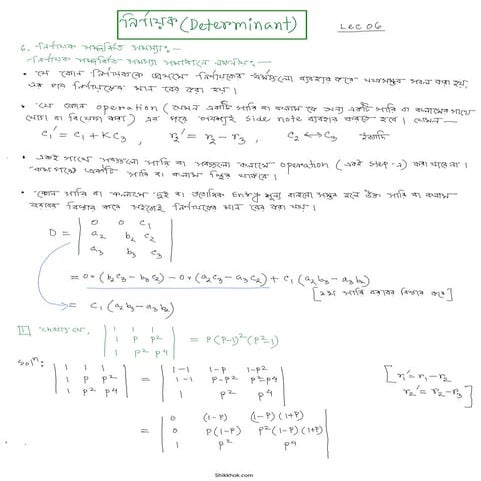 নির্ণায়ক (Determinant)
LEC 06
6. নির্ণায়ক সম্পর্কিত সমস্যা:-
নির্ণায়ক সম্পর্কিত সমস্যা সমাধানের
যে কোন নির্ণায়ককে প্রথমে নির্ণায়কের ব্যবহার করে সরল করা হয়,
এর পর নির্ণায়কের মান বের করা হয়।
যে কোন operation (যেমন একটি সারি বা কলাম কে অন্য একটি সারি বা কলামের সাথে
যোগ বা বিয়োগ করা) এর পরে অবশ্যই side note ব্যবহার করতে হবে। যেমন—
c₁' = c₁ + KC₃, r₂' = r₂ - r₃, C₂ ↔ C₃ ইত্যাদি
একই সাথে সবগুলো সারি বা সবগুলো কলামে operation (একই step-এ) করা যাবে না।
একটি সারি বা কলাম স্থির থাকবে।
কোন সারি বা কলামে দুই বা ততোধিক Entry শূন্য হলে উক্ত সারি বা কলাম
বরাবর বিস্তার করে সহজেই নির্ণায়কের মান বের করা যায়।
D = | 0 0 c₁ |
| a₂ b₂ c₂ |
| a₃ b₃ c₃ |
= 0·(b₂c₃ - b₃c₂) - 0·(a₂c₃ - a₃c₂) + c₁(a₂b₃ - a₃b₂)
[১ম সারি বরাবর বিস্তার করে]
= c₁(a₂b₃ - a₃b₂)
1 দেখাও যে, | 1 1 1 |
| 1 p p² | = p(p-1)²(p²-1)
| 1 p² p⁴ |
Solⁿ: | 1 1 1 | | 1-1 1-p 1-p² |
| 1 p p² | = | 1-1 p-p² p²-p⁴ | [r₁' = r₁ - r₂
| 1 p² p⁴ | | 1 p² p⁴ | r₂' = r₂ - r₃]
| 0 (1-p) (1-p)(1+p) |
= | 0 p(1-p) p²(1-p)(1+p) |
| 1 p² p⁴ |
Shikkhok.com